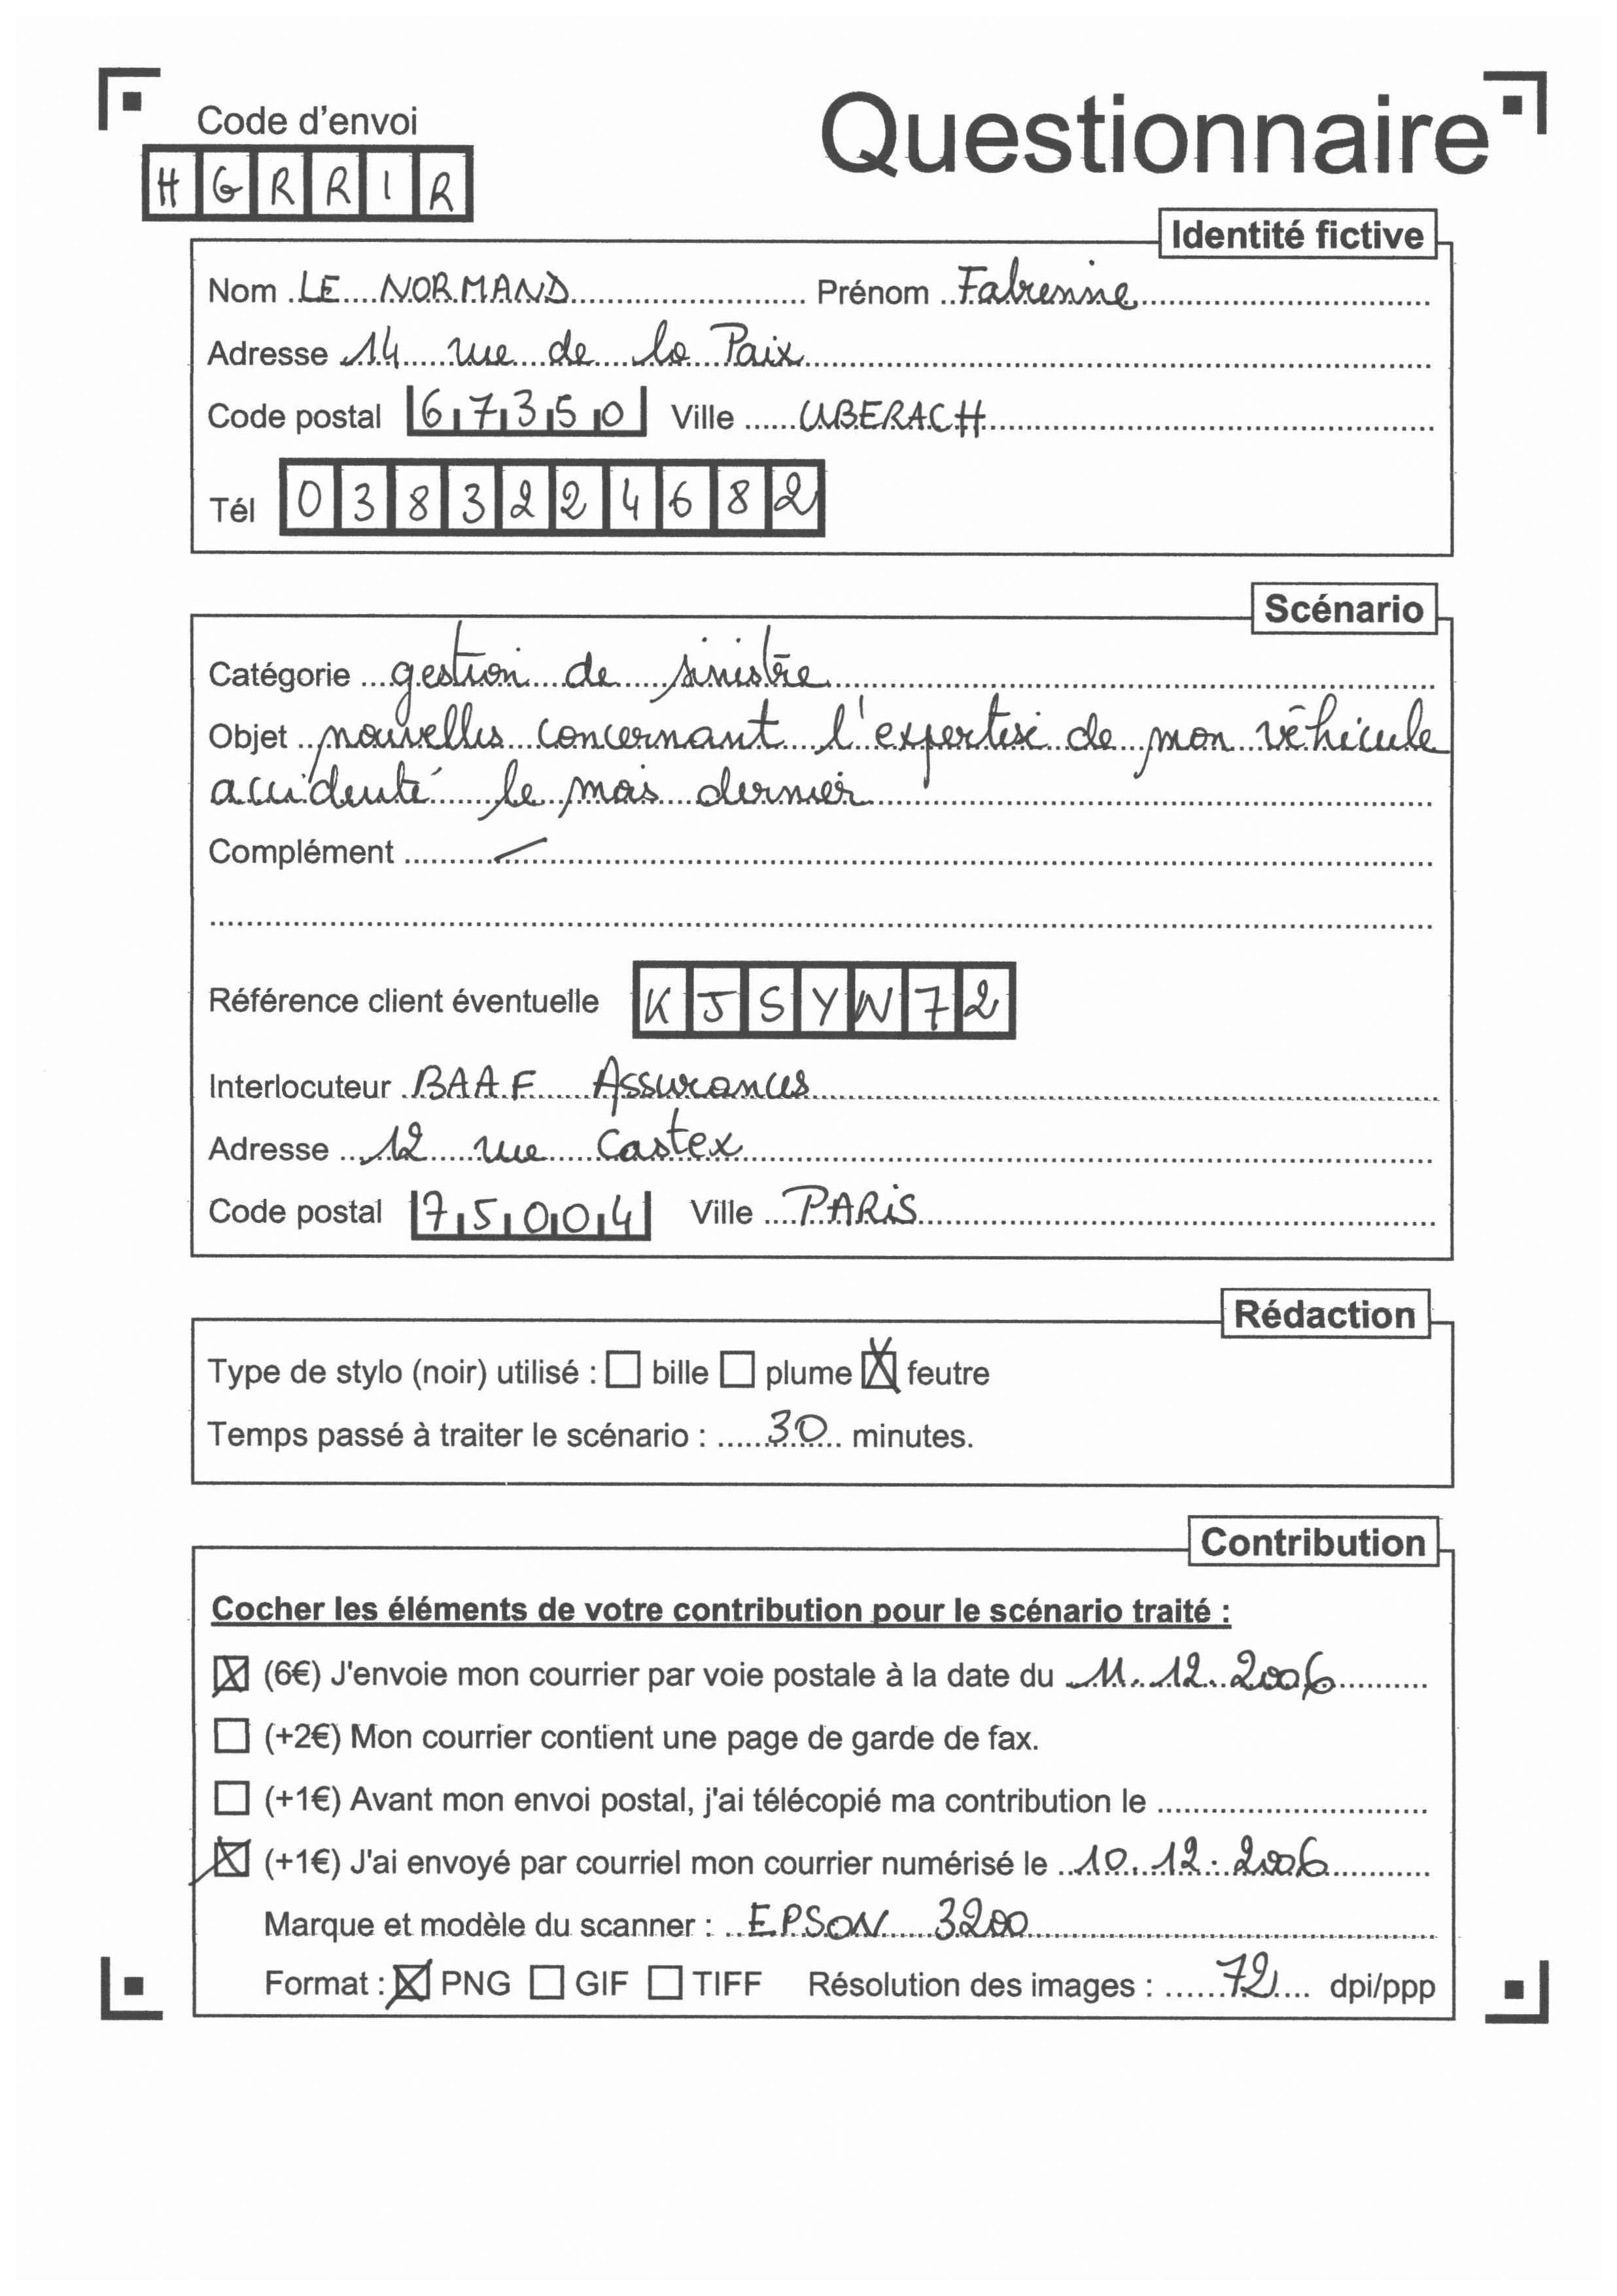 Code d'envoi
Questionnaire
HGRRIR
Identité fictive
Nom LE NORMAND Prénom Fabienne
Adresse 14 rue de la Paix
Code postal 67350 Ville UBERACH
Tél 0383224682
Scénario
Catégorie gestion de sinistre
Objet nouvelles concernant l'expertise de mon véhicule
accidenté le mois dernier
Complément /
Référence client éventuelle KJSYW72
Interlocuteur BAAF Assurances
Adresse 12 rue Castex
Code postal 75004 Ville PARIS
Rédaction
Type de stylo (noir) utilisé : ☐ bille ☐ plume ☒ feutre
Temps passé à traiter le scénario : 30 minutes.
Contribution
Cocher les éléments de votre contribution pour le scénario traité :
☒ (6€) J'envoie mon courrier par voie postale à la date du 11.12.2006
☐ (+2€) Mon courrier contient une page de garde de fax.
☐ (+1€) Avant mon envoi postal, j'ai télécopié ma contribution le
☒ (+1€) J'ai envoyé par courriel mon courrier numérisé le 10.12.2006
Marque et modèle du scanner : EPSON 3200
Format : ☒ PNG ☐ GIF ☐ TIFF Résolution des images : 72 dpi/ppp